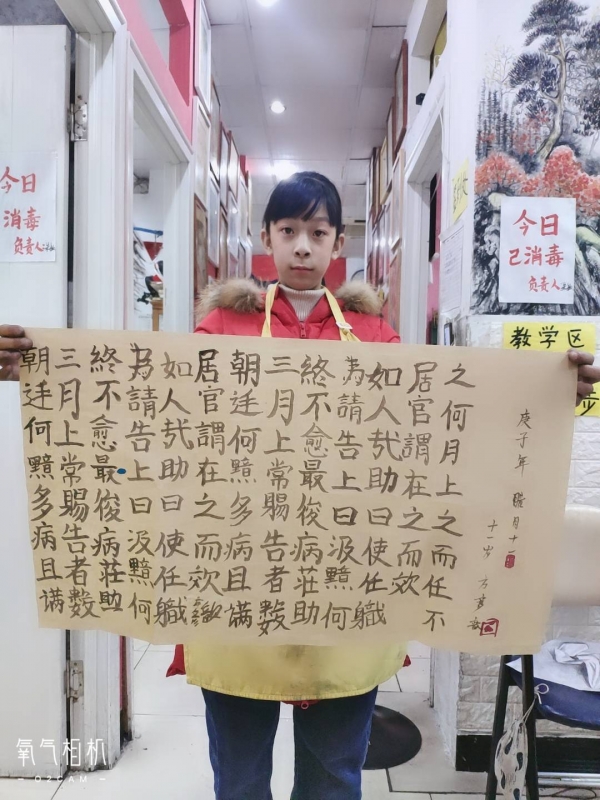 今日
消毒
负责人
今日
已消毒
负责人
教学区
步
朝廷何黯多病且满
三月上常賜告者數
終不愈最俊病莊助
為請告上曰汲黯何
如人哉助曰使任職
居官謂在之而欬
朝廷何黯多病且满
三月上常賜告者數
終不愈最俊病莊助
為請告上曰汲黯何
如人哉助曰使任職
居官謂在之而欬
之何月上之而任不
庚子年 月十一
十一岁
氧气相机
O2CAM